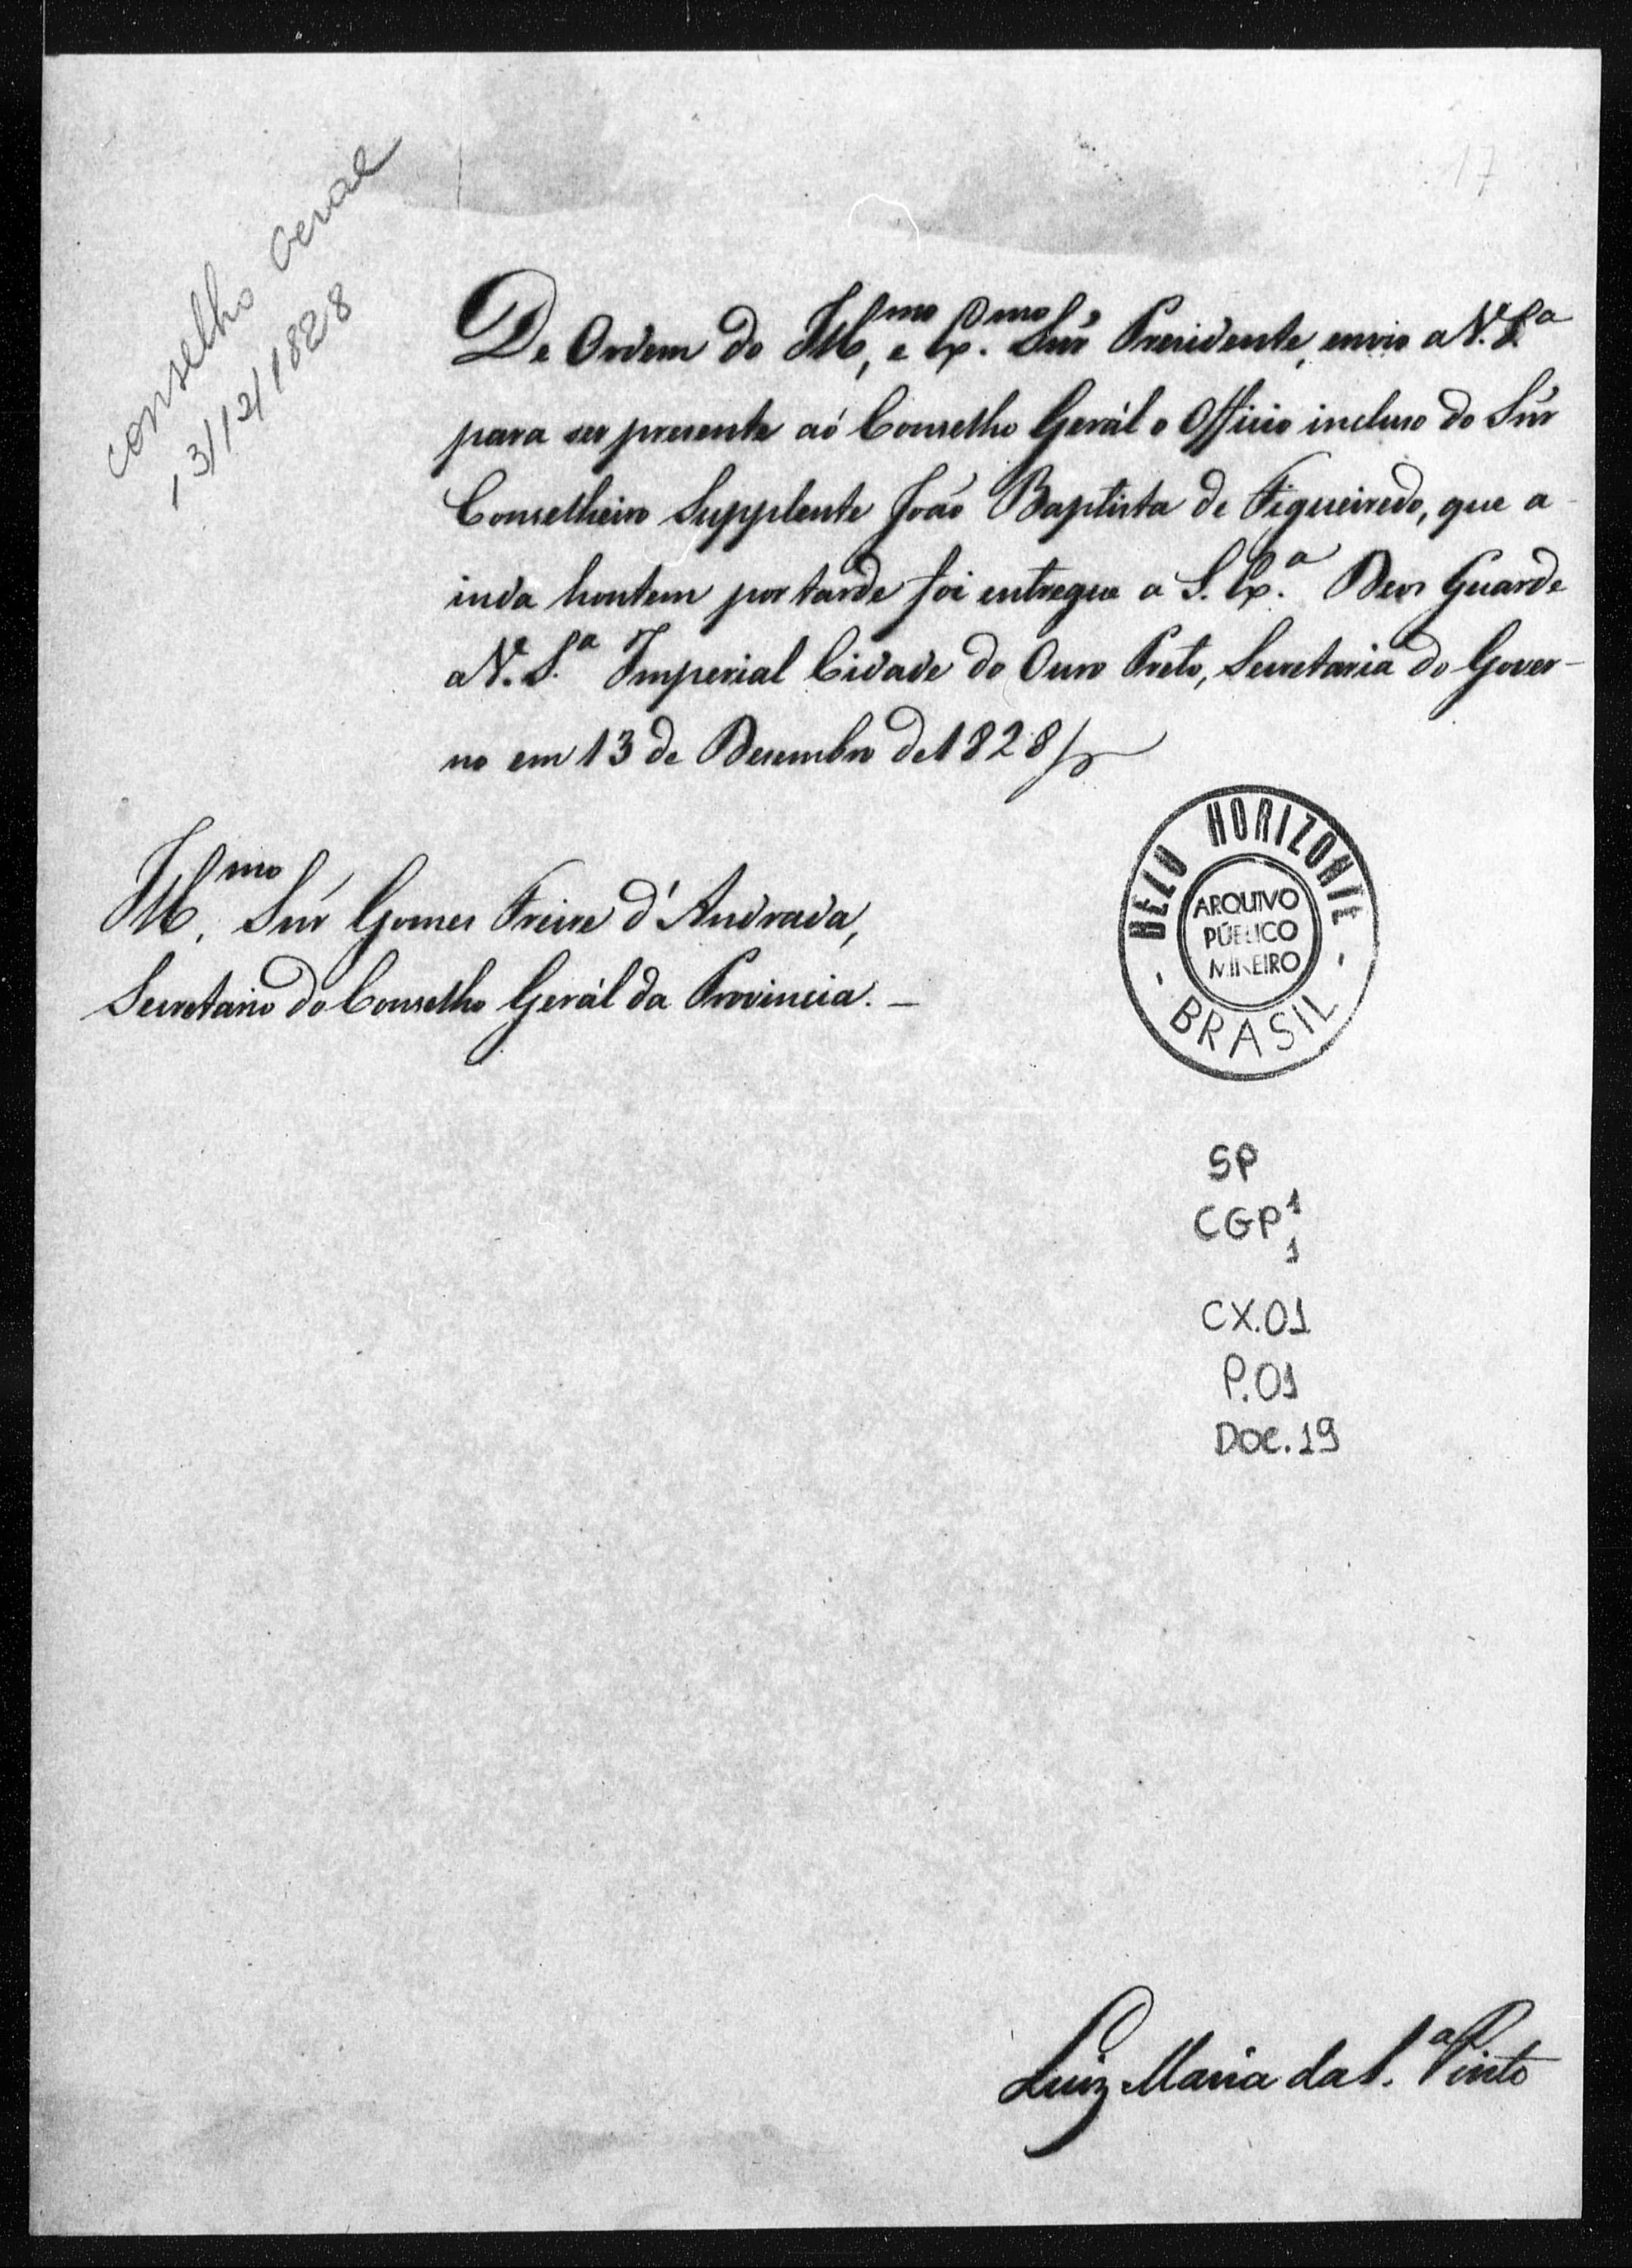 Conselho Geral
13/12/1828
17
De Ordem do Ill.mo, e Ex.mo Snr Presidente, envio a V. S.a
para ser presente aó Conselho Gerál o Officio incluso do Snr
Conselheiro Supplente João Baptista de Figueiredo, que a-
inda hontem por tarde foi entregue a S. Ex.a Deos Guarde
a V. S.a Imperial Cidade do Ouro Preto, Secretaria do Gover-
no em 13 de Desembro de 1828
Ill.mo Snr Gomes Freire d'Andrada,
Secretario do Conselho Gerál da Provincia. —
BELO HORIZONTE
ARQUIVO
PÚBLICO
MINEIRO
- BRASIL -
SP
CGP 1
1
CX.01
P.01
Doc.19
Luiz Maria da S.a Pinto